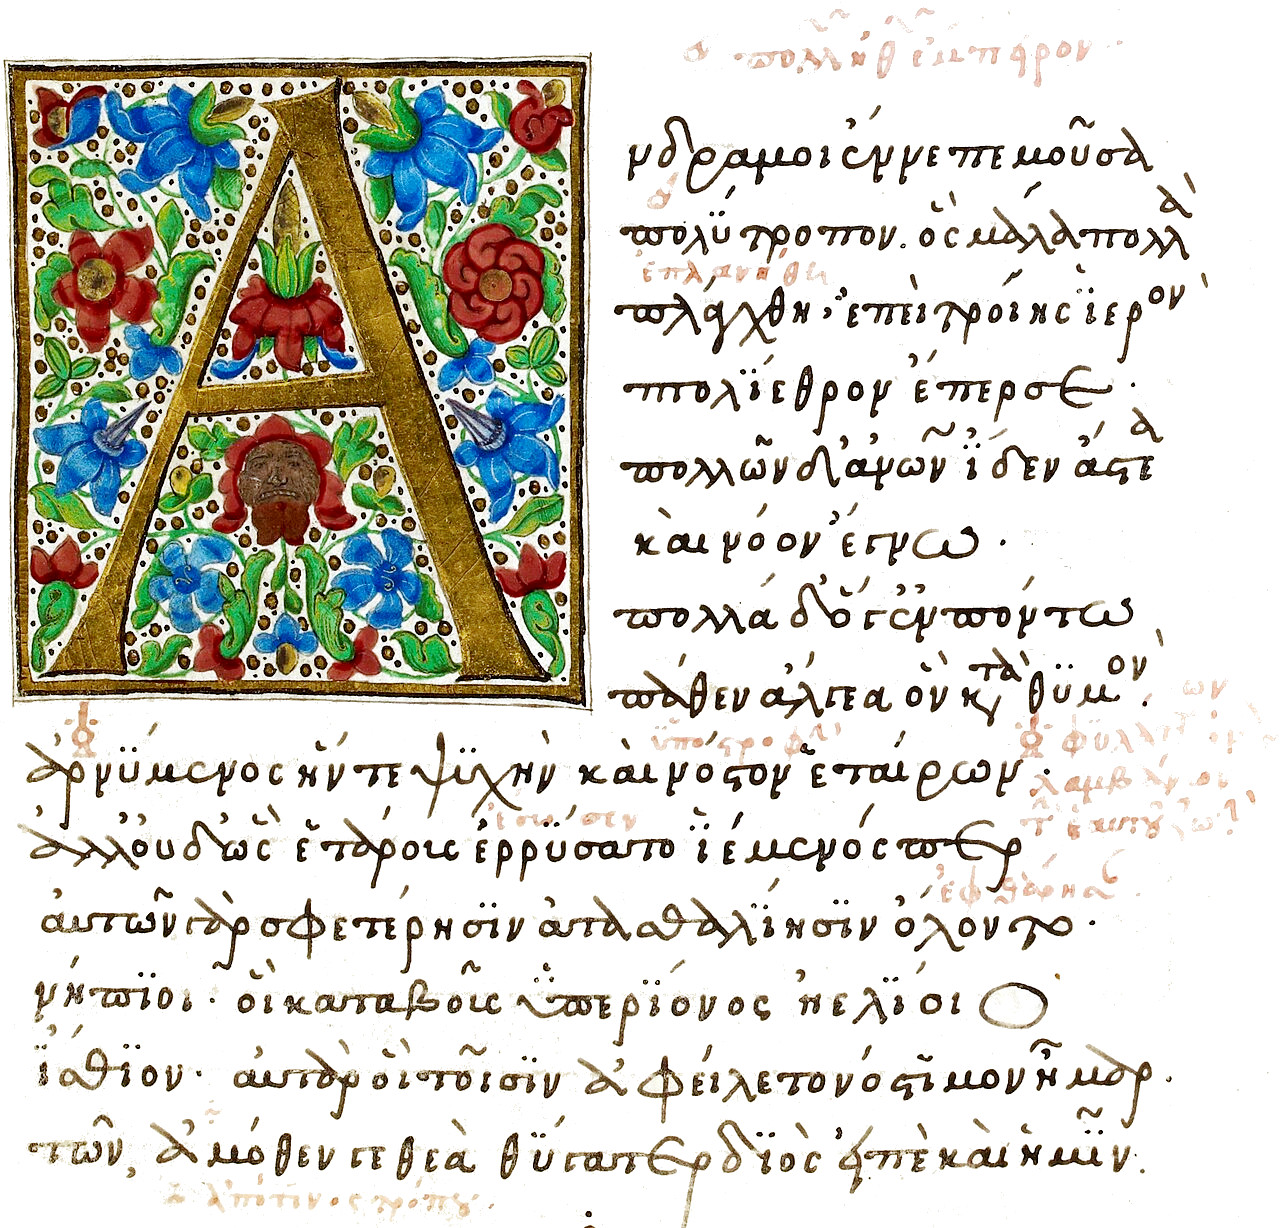 πολλὴ ἔμπειρον
Α
νδρα μοι ἔννεπε μοῦσα
πολύτροπον. ὃς μάλα πολλὰ
ἐπλανήθη
πλάγχθη, ἐπεὶ τροίης ἱερὸν
πτολίεθρον ἔπερσε.
πολλῶν δ' ἀνθρώπων ἴδεν ἄστεα
καὶ νόον ἔγνω.
πολλὰ δ' ὅγ' ἐν πόντω
πάθεν ἄλγεα ὃν κατὰ θυμόν.
ὑποστροφὴν
ἀρνύμενος ἥν τε ψυχὴν καὶ νόστον ἑταίρων.
ἔσωσεν
ἀλλ' οὐδ' ὣς ἑτάροις ἐρρύσατο ἱέμενός περ
ἐφθάρησαν
αὐτῶν γὰρ σφετέρησιν ἀτασθαλίησιν ὄλοντο.
νήπιοι. οἳ κατὰ βοῦς ὑπερίονος ἠελίοιο
ἤσθιον. αὐτὰρ ὃ τοῖσιν ἀφείλετο νόστιμον ἦμαρ.
τῶν, ἁμόθεν γε θεὰ θύγατερ διὸς εἰπὲ καὶ ἡμῖν.